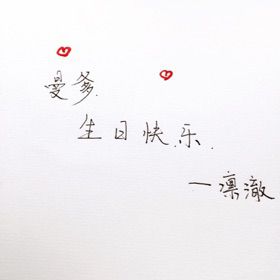 曼爹.
生日快乐.
—凛澈